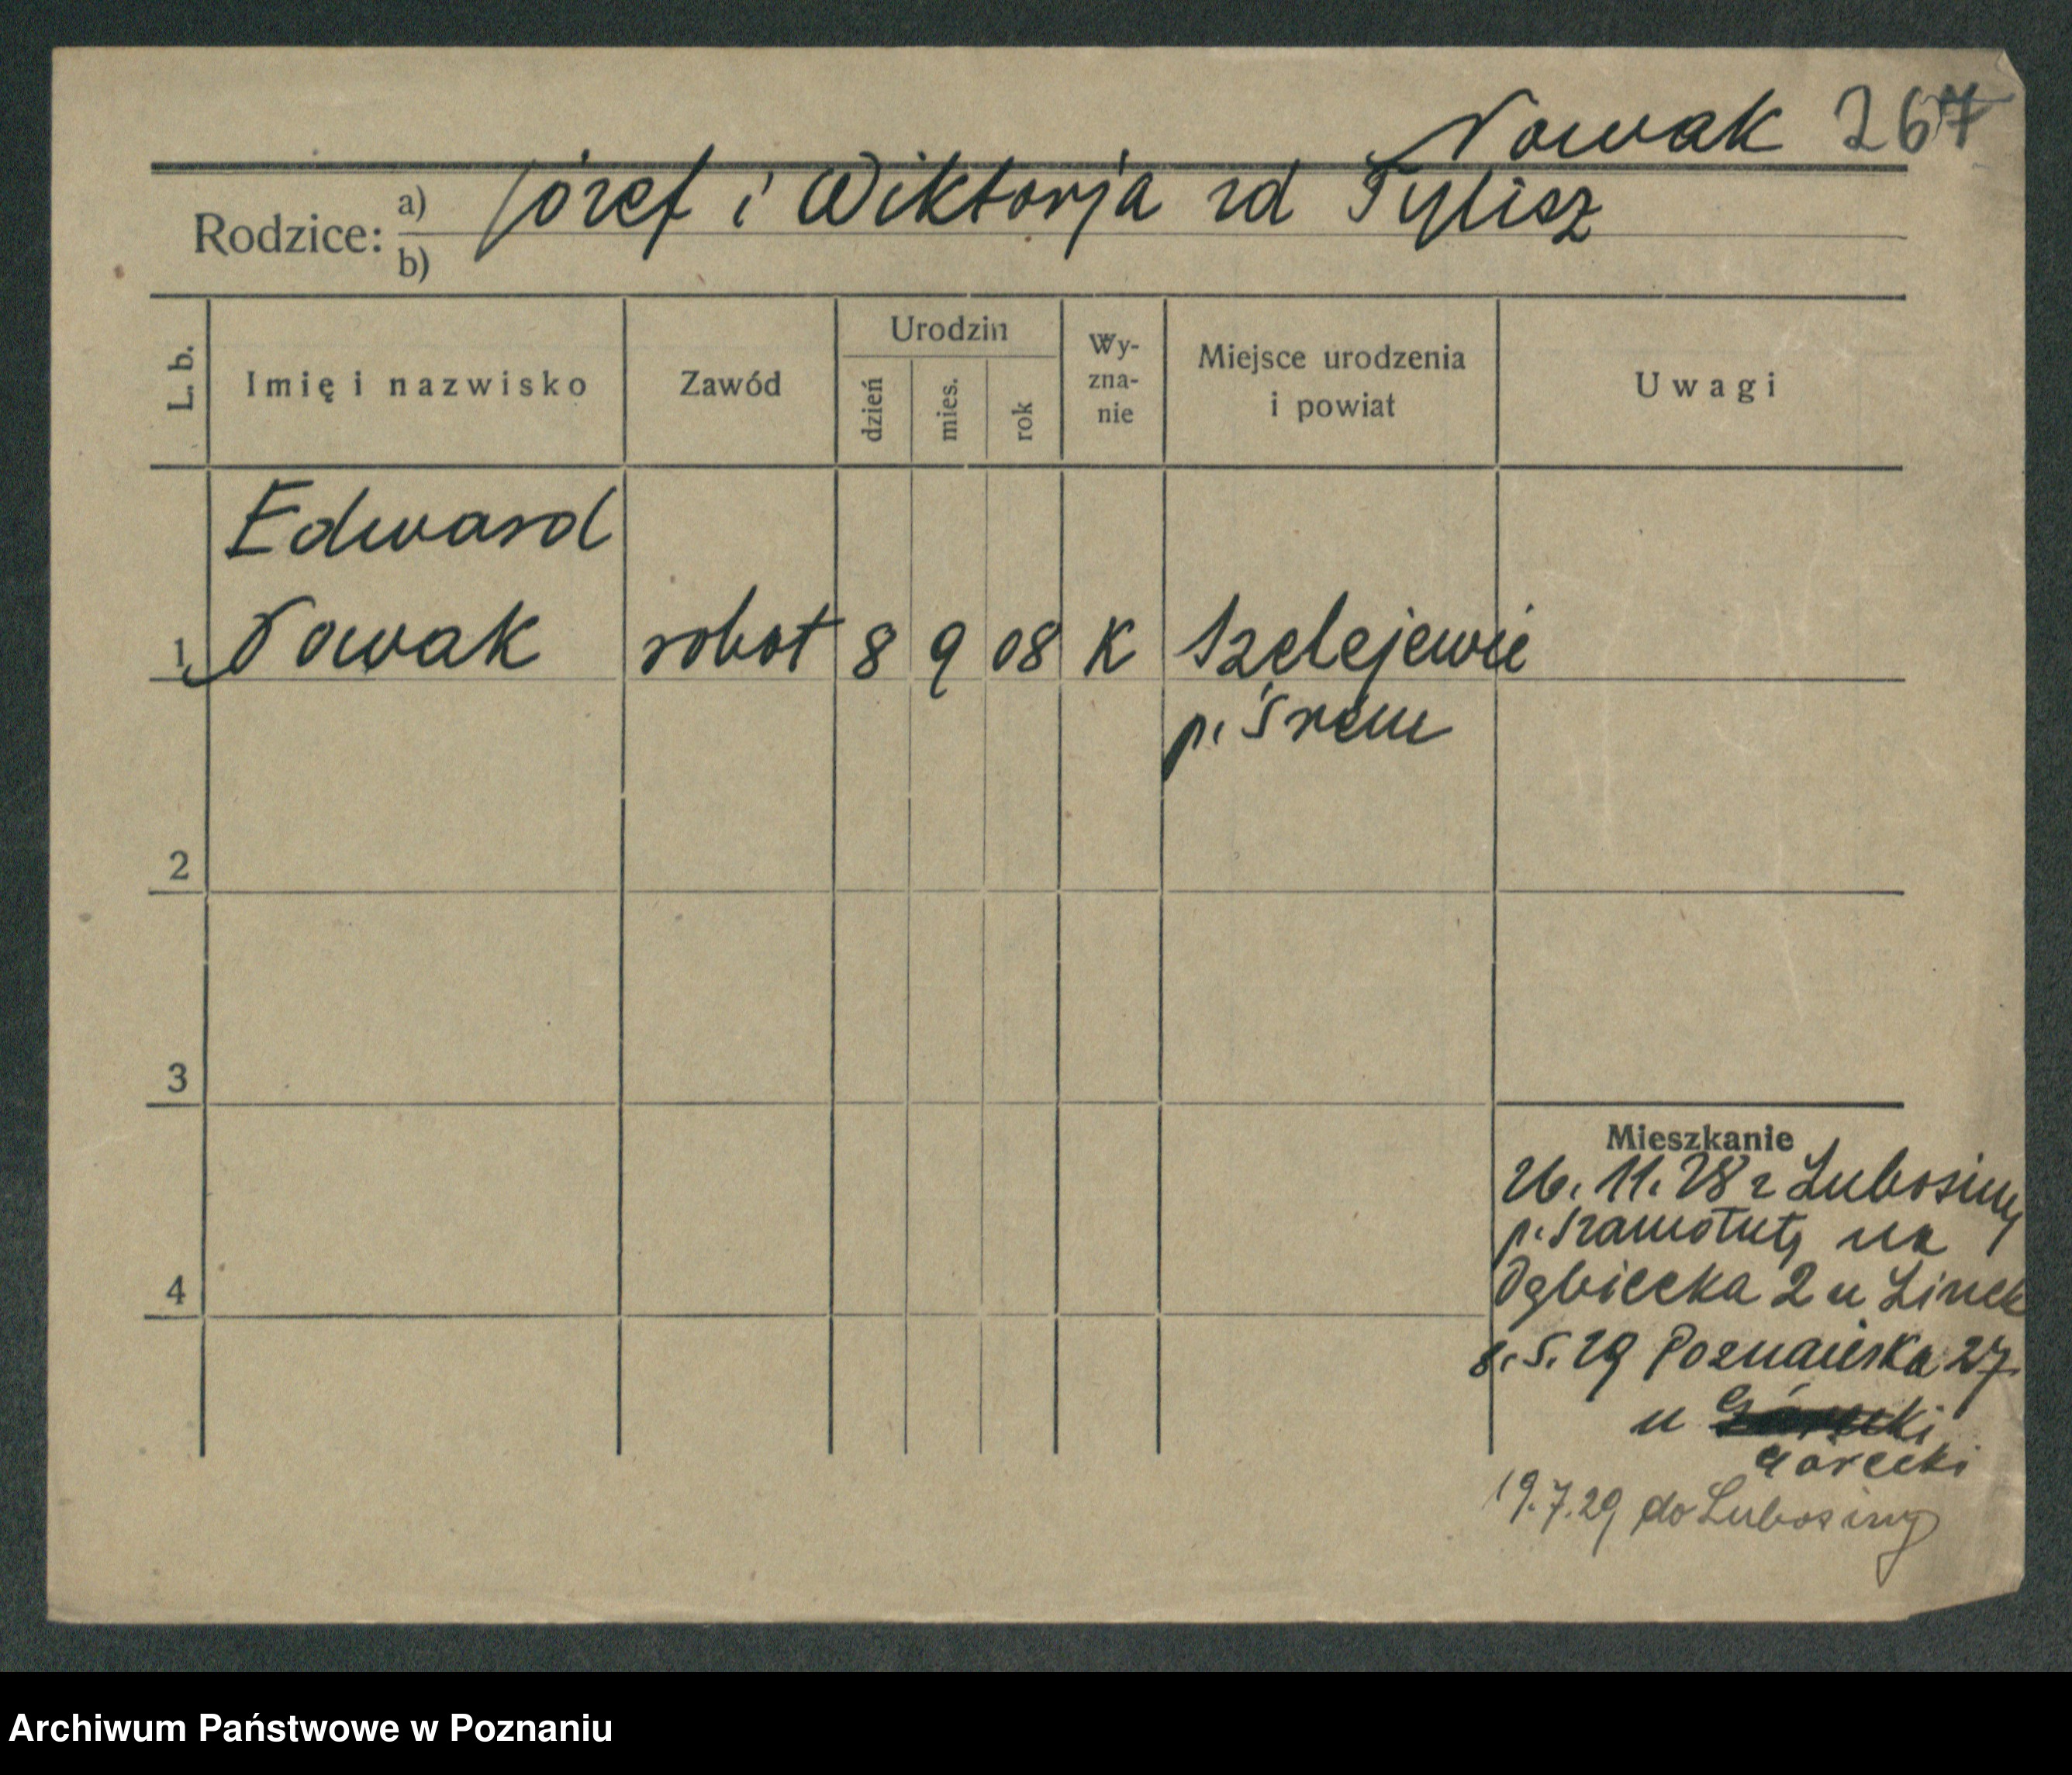 Nowak 267
Rodzice: a) Józef i Wiktorja zd Tylisz
b)
L. b. Imię i nazwisko Zawód Urodzin dzień mies. rok Wy-zna-nie Miejsce urodzenia i powiat Uwagi
Edward
1 Nowak robot 8 9 08 K Szelejewie
p. Śrem
2
3
Mieszkanie
26. 11. 28 z Lubosiny
p. Szamotuły na
4
2 u Linek
8. 5. 29 Poznańska 27
u
Górecki
19. 7. 29 do Lubosiny
Archiwum Państwowe w Poznaniu